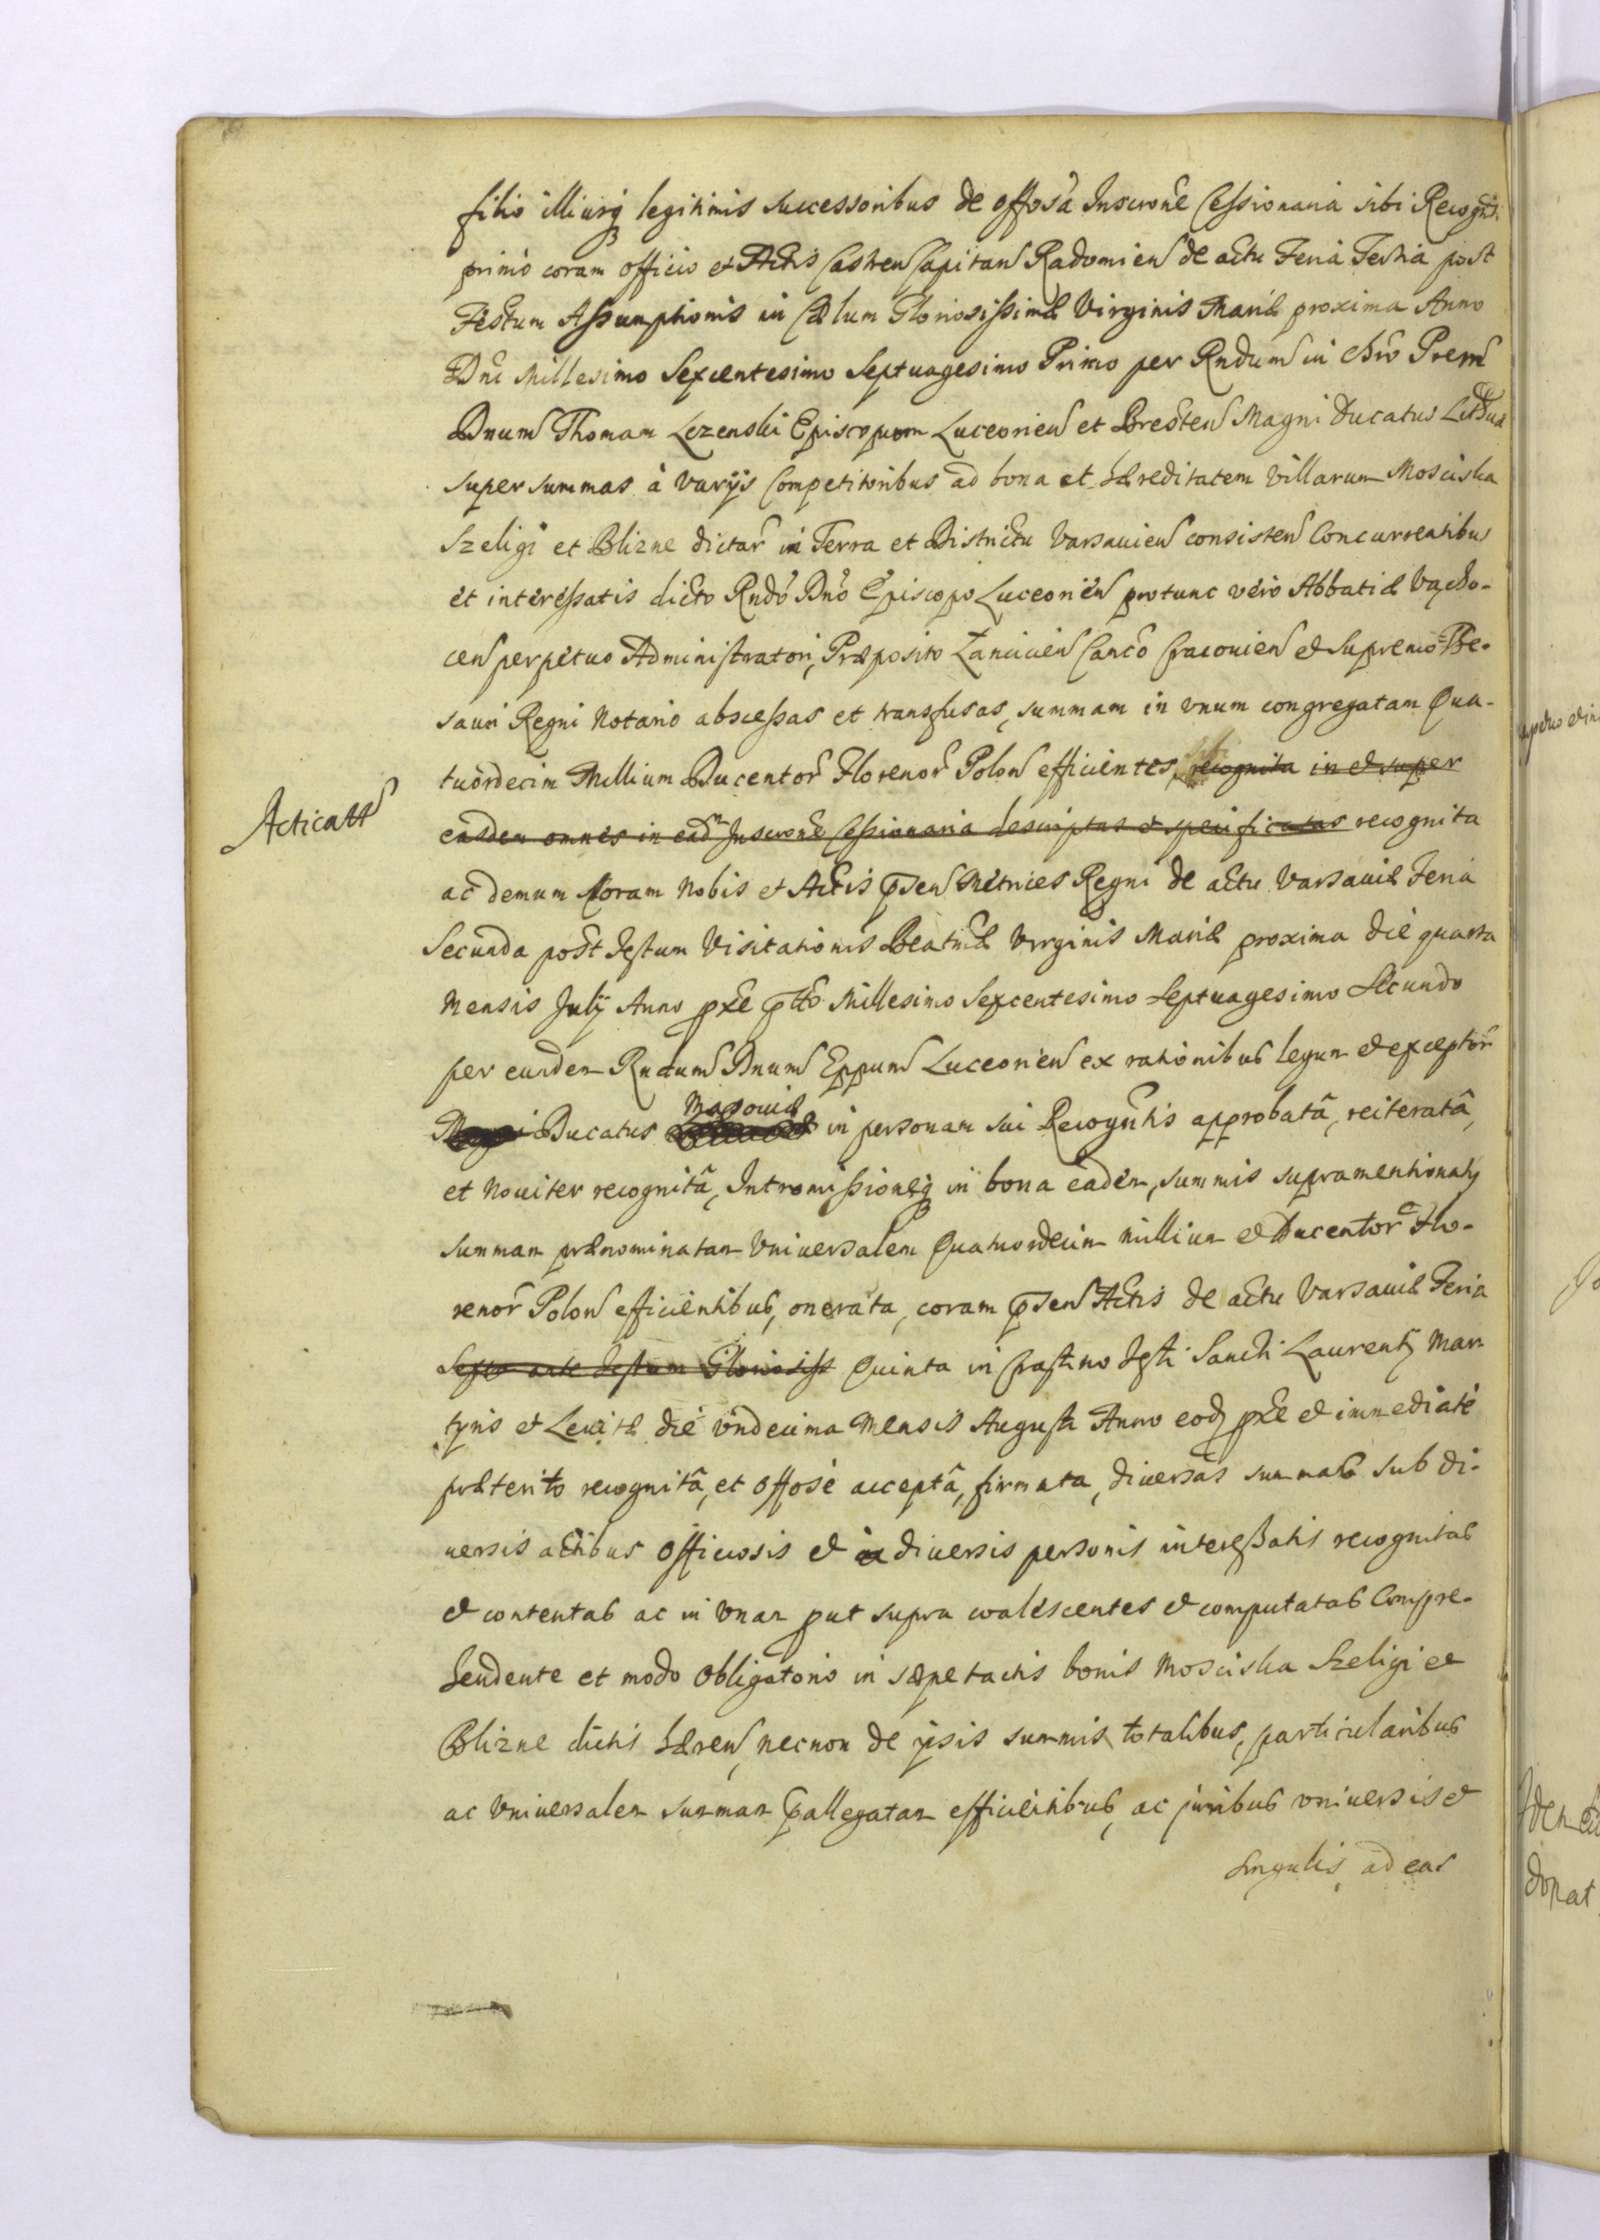 filio illiusq legitimis successoribus de offosa Inscrone Cessionaria sibi Recogn
primo coram officio et Actis Castren Capitan Radomien de actu Feria Tertia post
Festum Assumptionis in Cælum Gloriosissimæ Virginis Mariæ proxima Anno
Dni Millesimo Sexcentesimo Septuagesimo Primo per Rndum in Chro Prem
Dnum Thomam Lezenski Episcopum Luceorien et Bresten Magni Ducatus
super summas à varijs Competitoribus ad bona et hæreditatem villarum Mosciska
Szeligi et Blizne dictar in Terra et Districtu Varsavien consisten Concurrentibus
et interessatis dicto Rndo Dno Episcopo Luceorien protunc vero Abbatiæ Vącho-
cen perpetuo Administratori, Præposito Lancicien Canco Cracovien et Supremo The-
sauri Regni Notario abscessas et transfusas, summam in unum congregatam Qua-
tuordecim Millium Ducentor Florenor Polon efficientes, recognita in et super
Acticatt
easdem omnes in ead Inscrone Cessionaria descriptas et specificatas recognita
ac demum Coram Nobis et Actis psen Metrices Regni de actu Varsaviæ Feria
Secunda post Festum Visitationis Beatmæ Virginis Mariæ proxima die quarta
Mensis July Anno pxe ptto Millesimo Sexcentesimo Septuagesimo Secundo
per eundem Rndum Dnum Eppum Luceorien ex rationibus legum et exceptor
Ducatus Masoviæ in personam sui Recogntis approbatâ, reiteratâ,
et noviter recognitâ, Intromissioneq in bona eadem, summis supramentionatis
summam prænominatam Universalem Quatuordecim millium et Ducentor Flo-
renor Polon efficientibus, onerata, coram psen Actis de actu Varsaviæ Feria
Sexta ante Festum Glorioiss Quinta in Crastino Festi Sancti Laurentij Mar
tyris et Levitæ die undecima Mensis Augusti Anno eod pxe et immediate
præterito recognitâ, et offose acceptâ, firmata, diversas summas sub di-
versis actibus officiosis et a diversis personis interessatis recognitas
et contentas ac in unam put supra coalescentes et computatas Compre-
hendente et modo obligatorio in sæpetactis bonis Mosciska Szeligi et
Blizne dictis hæren, necnon de ipsis summis totalibus, particularibus
ac Universalem summam pallegatam efficientibus, ac juribus universis et
singulis ad eas